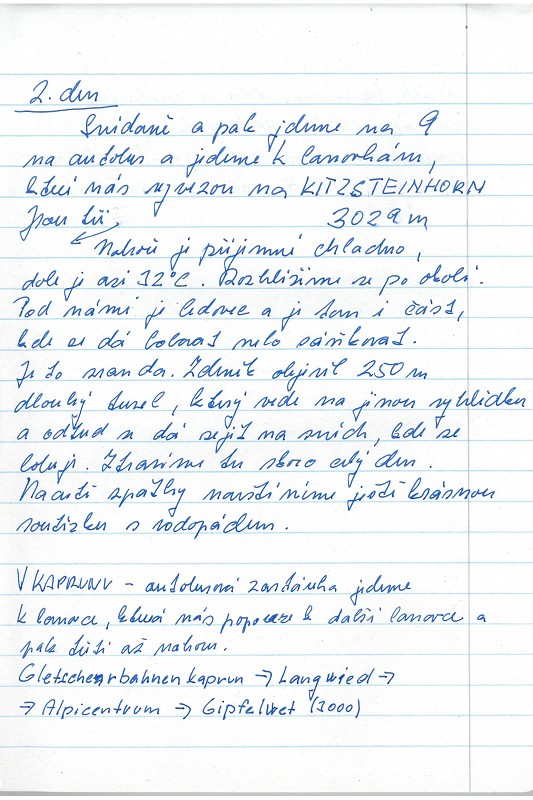 2. den
Snídaně a pak jdeme na 9
na autobus a jedeme k lanovkám,
které nás vyvezou na KITZSTEINHORN
Jsou tři 3029 m
Nahoře je příjemné chladno,
dole je asi 32°C. Rozhlížíme se po okolí.
Pod námi je ledovec a je tam i část,
kde se dá bobovat nebo sáňkovat.
Je to sranda. Zdeněk objevil 250 m
dlouhý tunel, který vede na jinou vyhlídku
a odtud se dá sejít na sníh, kde se
bobuje. Ztravíme tu skoro celý den.
Na cestě zpátky navštívíme ještě krásnou
soutězku s vodopádem.
V KAPRUNU – autobusová zastávka jdeme
k lanovce, která nás popoveze k další lanovce a
pak třetí až nahoru.
Gletscherbahnen kaprun → Langwied →
→ Alpicentrum → Gipfelwet (3000)